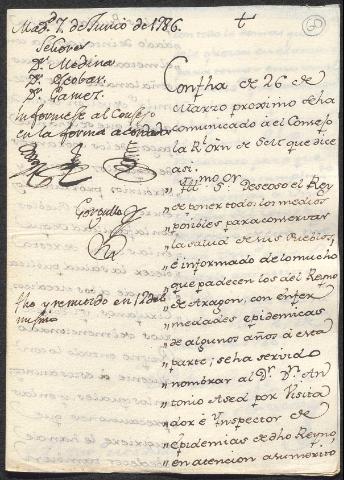 Mad.d 7. de Junio de 1786.
Señores
D.r Medina
D.r Escobar.
D.r Gamez.
Informese al Consejo
en la forma acordada
Gorgullo
fho y remitido en 12 del
mismo
Con fha de 26 de
Marzo proximo se ha
comunicado à el Consejo
la Rl. Orn de S.M. que dice
asi.
„ Ill.mo S.or Deseoso el Rey
„ de poner todos los medios
„ posibles para conservar
„ la salud de sus Pueblos,
„ é informado de lo mucho
„ que padecen los del Reyno
„ de Aragon, con enfer
„ medades epidemicas
„ de algunos años á esta
„ parte; se ha servido
„ nombrar al D.r D.n An
„ tonio Ased por Visita
„ dor è Ynspector de
„ epidemias de dho Reyno,
„ en atencion a su merito